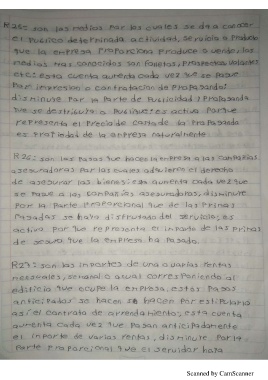 R 25: son los medios por los cuales se da a conocer
al publico determinada actividad, servicio o producto
que la empresa proporciona produce o vende, los
medios mas conocidos son folletos, prospectos, volantes
etc: esta cuenta aumenta cada vez que se pague
por impresion o contratacion de propaganda:
disminuye por la parte de publicidad y propaganda
que se distribuya o publique: es activo porque
representa el precio de costo de la propaganda
es propiedad de la empresa naturalmente.
R 26: son los pagos que hace la empresa a las compañias
aseguradoras por las cuales adquieren el derecho
de asegurar los bienes: esta aumenta cada vez que
se pague a las compañias aseguradoras, disminuye
por la parte proporcional que de las primas
pagadas se haya disfrutado del servicio, es
activo por que representa el importe de las primas
de seguro que la empresa ha pagado.
R 27: son los importes de una o varias rentas
mensuales, semanal o anual correspondiente al
edificio que ocupe la empresa, estos pagos
anticipados se hacen se hacen por estipularlo
asi el contrato de arrendamiento; esta cuenta
aumenta cada vez que pagan anticipadamente
el importe de varias rentas, disminuye por la
parte proporcional que el servidor haya
Scanned by CamScanner